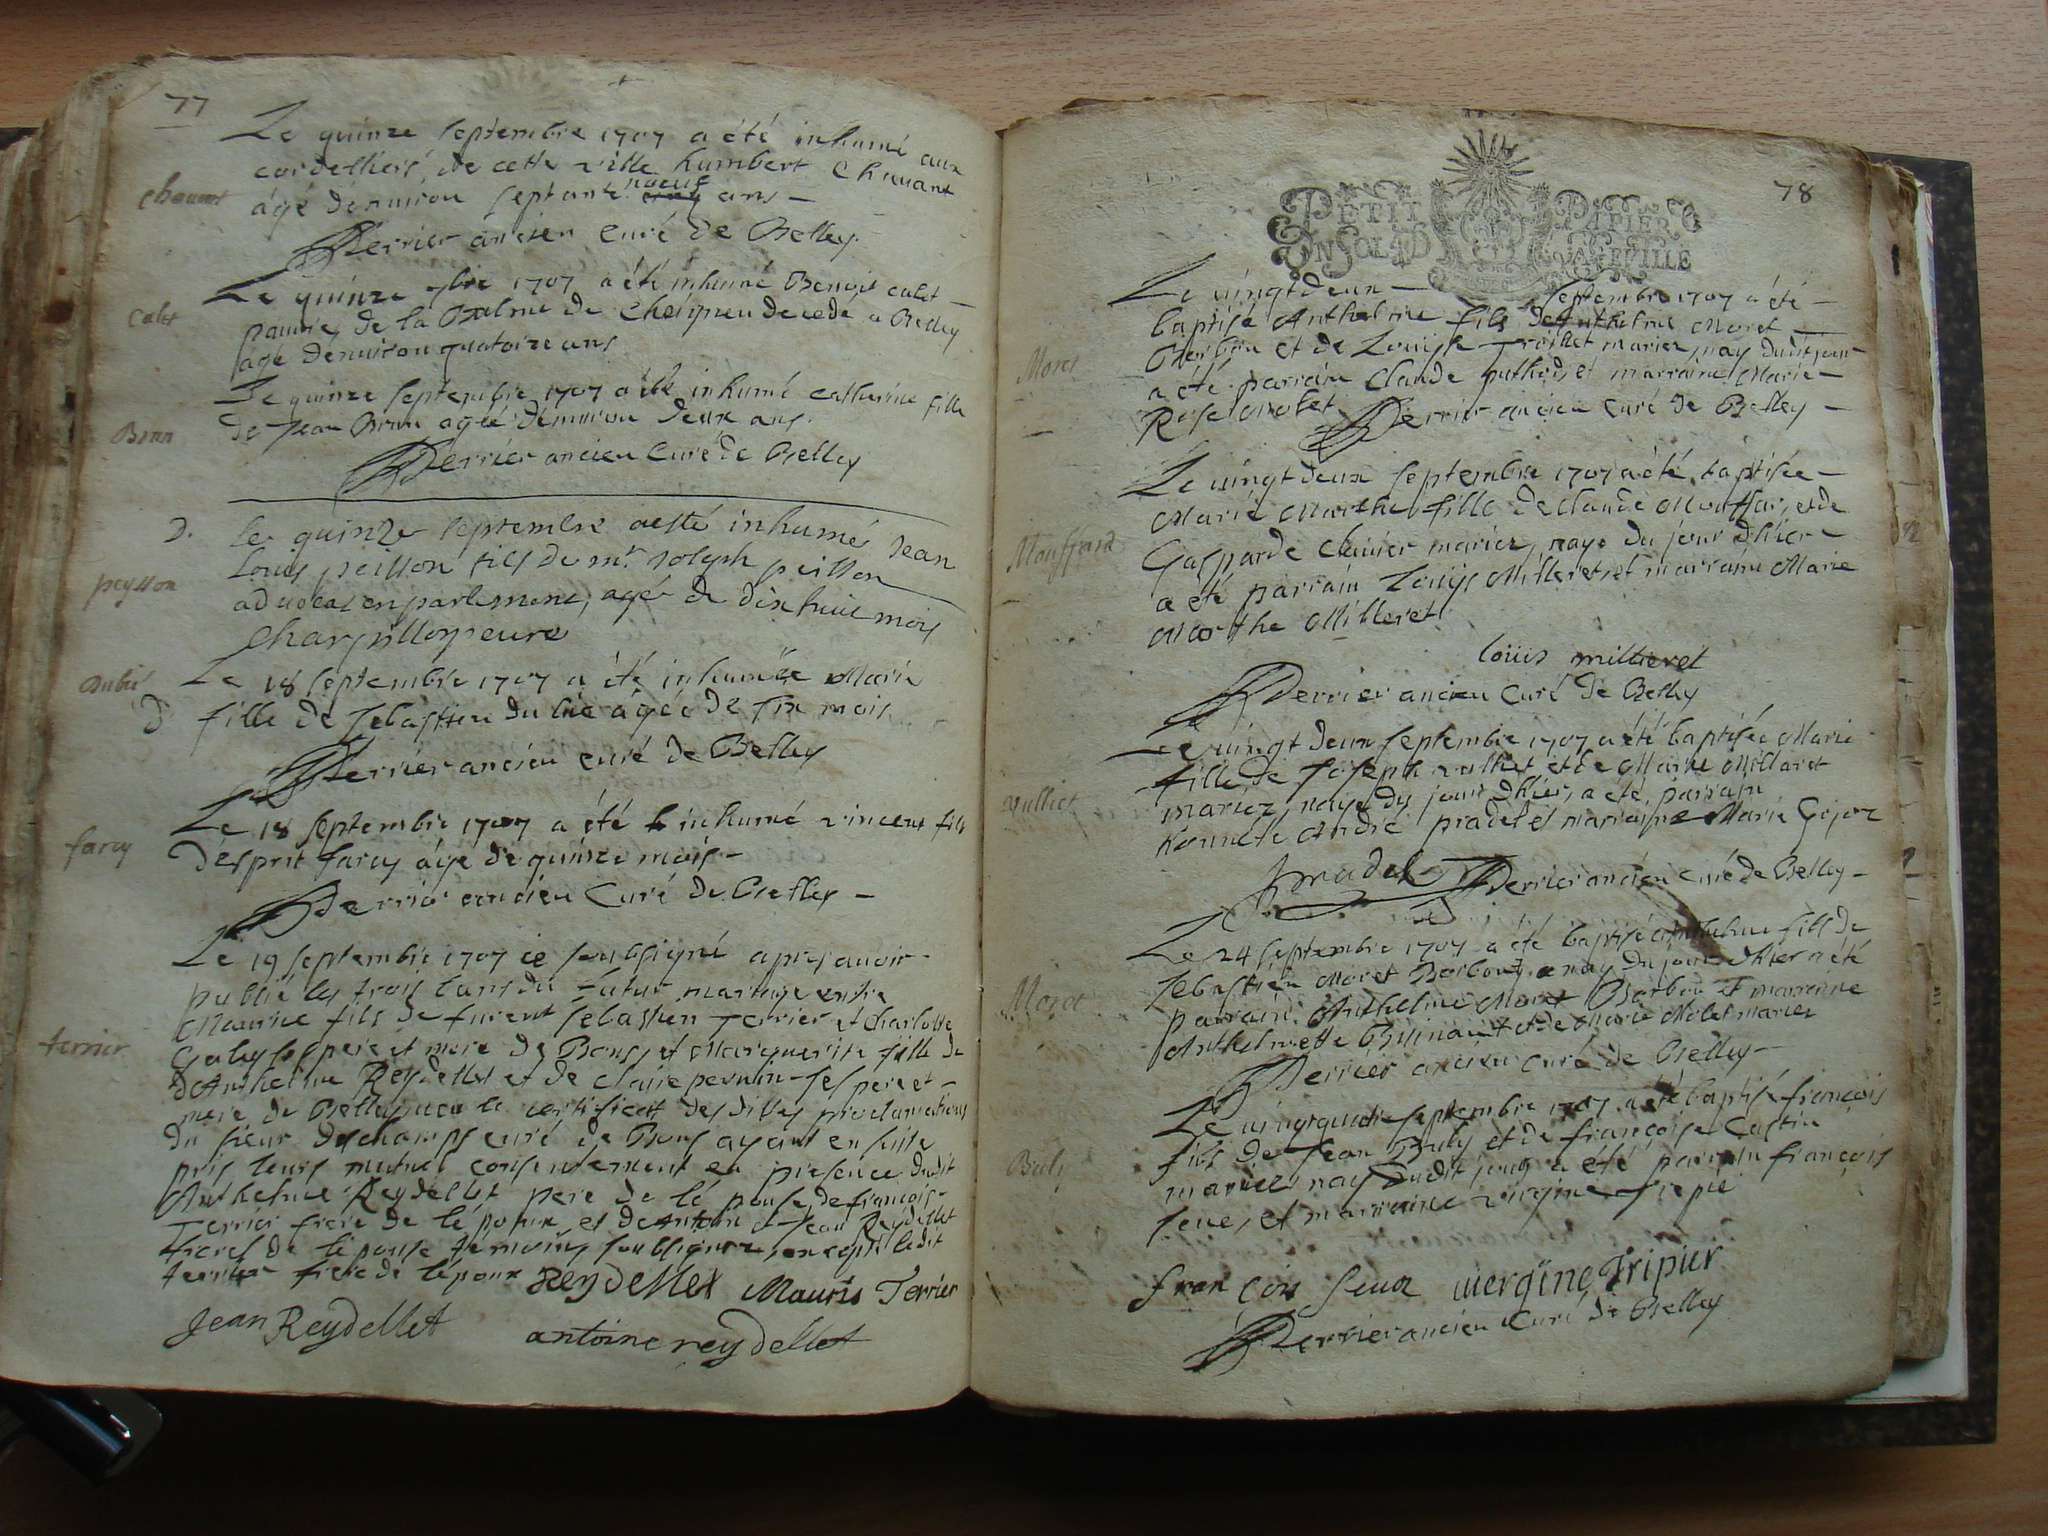 77
Le quinze septembre 1707 a été inhumé aux
cordelliers, de cette ville humbert Chavant
âgé d'environ septante noeuf cinq ans
Chavant
Perrier ancien curé de Belley
Le quinze 7bre 1707 a été inhumé Benoit calet
pauvre de la Balme de decedé a Belley
agé d'environ quatorze ans
Calet
Le quinze septembre 1707 a été inhumé catherine fille
de Jean Brun agée d'environ deux ans.
Brun
Perrier ancien curé de Belley
D.
le quinze septembre a esté inhumé Jean
Louis peisson fils de mr. Joseph peisson
advocat en parlement, agé de dix huit mois
peysson
Le 18 septembre 1707 a été inhumée Marie
fille de sebastien Dubié agée de six mois
Dubié
D
Perrier ancien curé de Belley
Le 18 septembre 1707 a été inhumé vincent fils
d'esprit farcy âgé de quinze mois
farcy
Perrier ancien curé de Belley
Le 19 septembre 1707 je soubsigné apres avoir
publié les trois bans du futur mariage entre
Maurice fils de furent sebastien Terrier et Charlotte
ses pere et mere de Bons, et Marguerite fille de
d'Anthelme Reydellet et de claire pernin ses pere et
mere de Belley veu le certificat des dittes proclamations
du sieur deschamps curé de Bons ayant ensuite
pris leurs mutuel consentement en presence dudit
Anthelme Reydellet pere de l'épouse, de françois
Terrier frere de l'époux, et de Antoine et Jean Reydellet
freres de l'épouse témoins soubsignez, excepté ledit
terrier frere de l'époux
terrier
Reydellet Mauris Terrier
Jean Reydellet antoine reydellet
78
PETIT PAPIER
UN SOL 4D LA FEUILLE
Le vingt deux septembre 1707 a été
baptisé Anthelme fils de Anthelme Moret
Borbon et de Louise mariez, nay dudit jour
a été parrain Claude et marraine Marie
Rose Molet
Moret
Perrier ancien curé de Belley
Le vingt deux septembre 1707 a été baptisée
Marie Marthe fille de claude Mouffar, et de
Gasparde mariez, naye du jour d'hier
a été parrain Louys Milleret et marraine Marie
Marthe Milleret
Mouffard
loüis millieret
Perrier ancien curé de Belley
Le vingt deux septembre 1707 a été baptisée Marie
fille de Joseph vulliet et de Marie Millaret
mariez naye du jour d'hier, a été parrain
honneté André pradel et marraine Marie Gojoz
Vulliet
pradel Perrier ancien curé de Belley
Le 24 septembre 1707 a été baptisé Anthelme fils de
sebastien Moret Borbon, nay du jour d'hier a été
parrain Anthelme Moret Borbon et marraine
Anthelmette et de Marie Molet mariez
Moret
Perrier ancien curé de Belley
Le vingt quatre septembre 1707 a été baptisé françois
fils de Jean Buly et de françoise Castin
mariez nay dudit jour a été parrain françois
seue, et marraine virgine
Buly
fran çois Seue vergine Tripier
Perrier ancien Curé de Belley